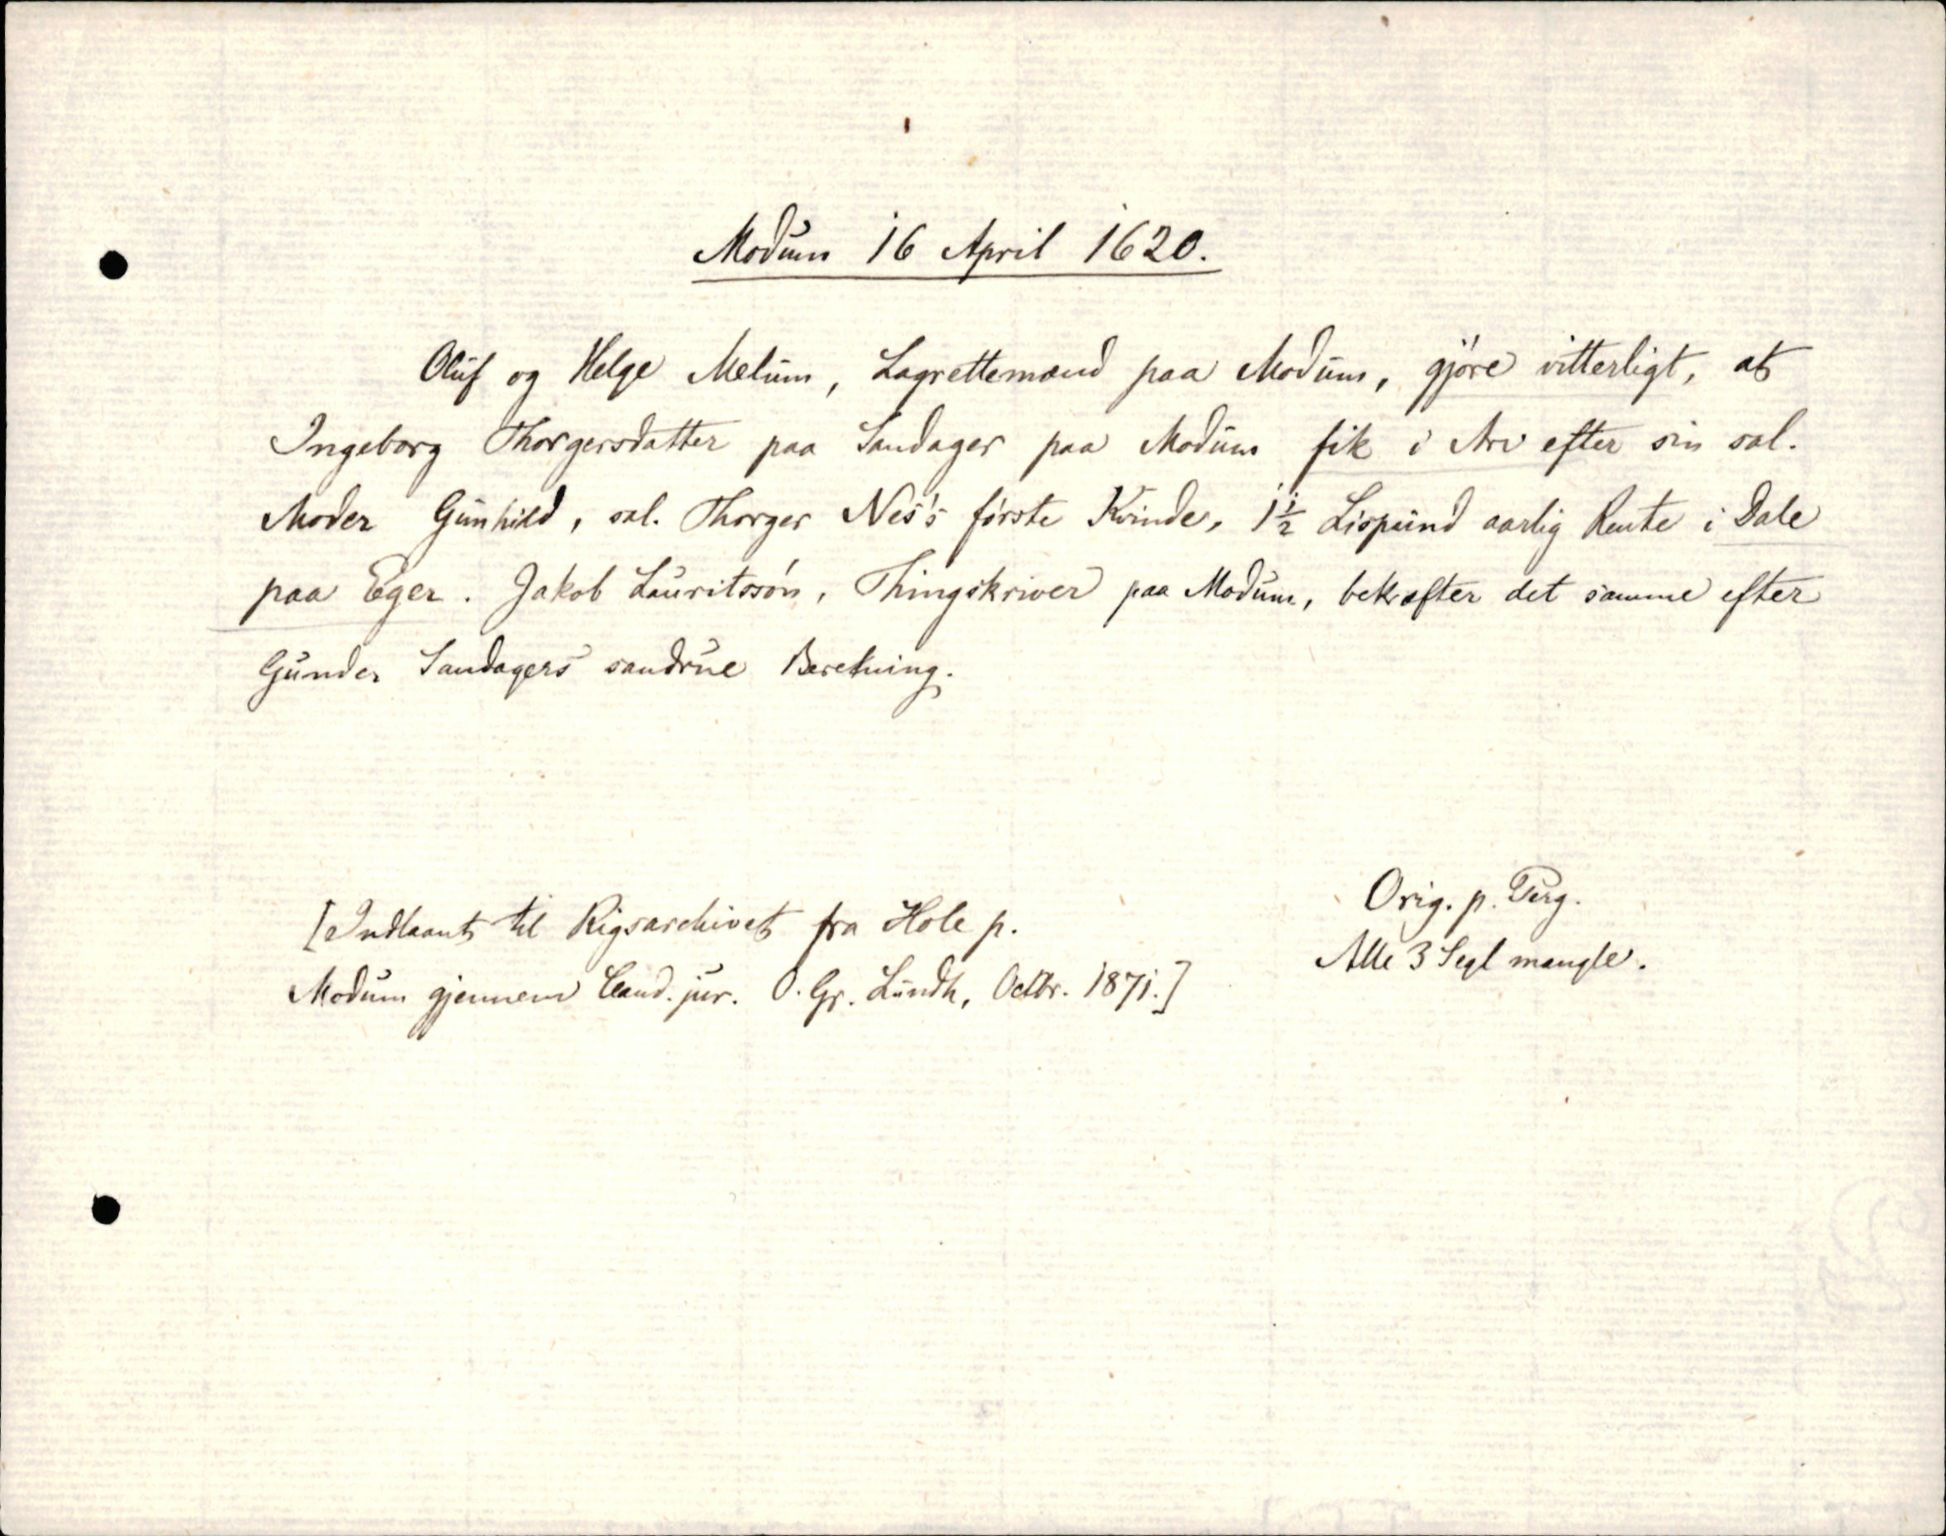 Modum 16 April 1620.
Oluf og Helge Melum, Lagrettemænd paa Modum, gjöre vitterligt, at
Ingeborg Thorgersdatter paa Sandager paa Modum fik i Arv efter sin sal.
Moder Gunhild, sal. Thorger Nes's förste Kvinde, 1½ Lispund aarlig Rente i Dale
paa Eger. Jakob Lauritssön, Thingskriver paa Modum, bekræfter det samme efter
Gunder Sandagers sandrue Beretning.
Orig. p. Perg.
Alle 3 Segl mangle.
[Indlaant til Rigsarchivet fra Hole p.
Modum gjennem Cand. jur. O. Gr. Lundh, Octbr. 1871.]